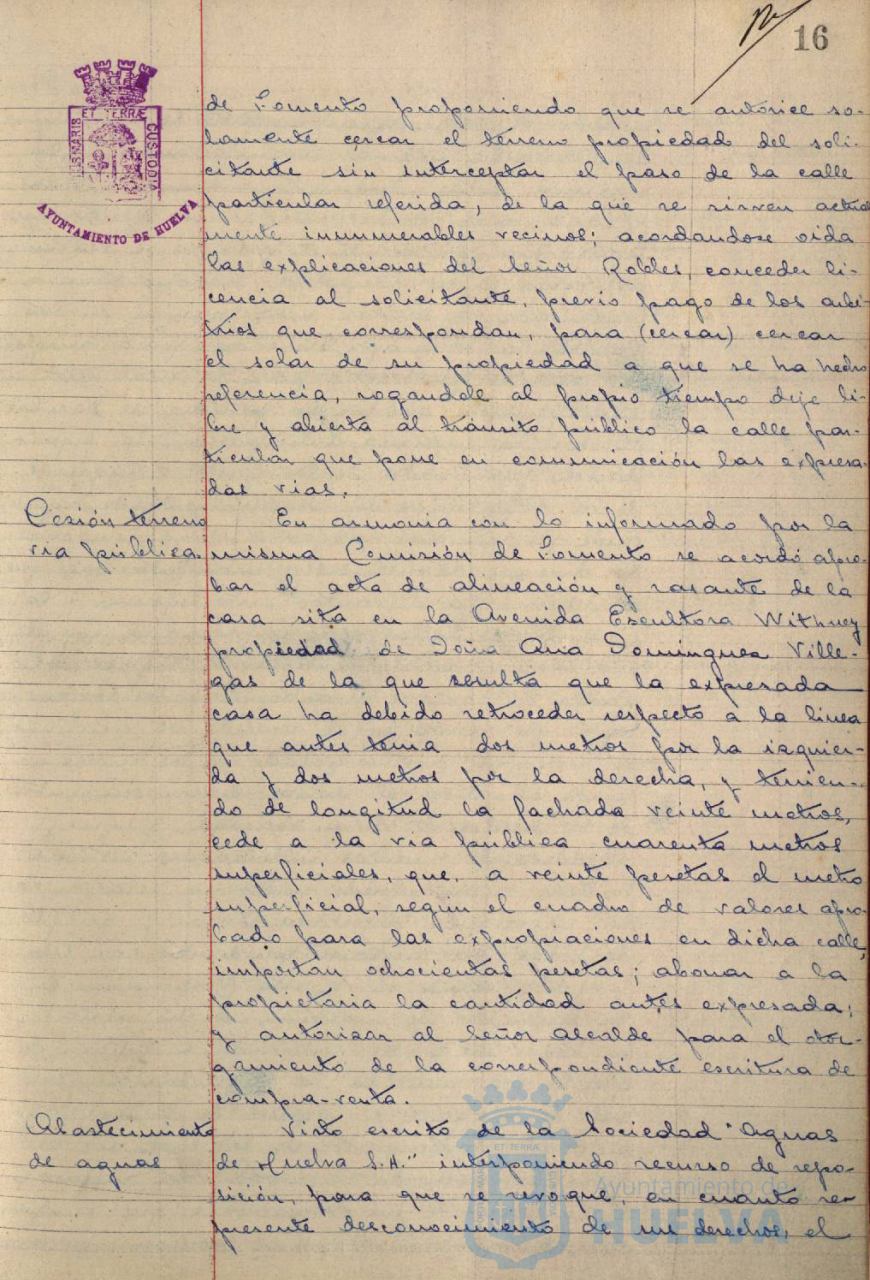 16
ET TERRÆ
CUSTODIA
AYUNTAMIENTO DE HUELVA
de Fomento proponiendo que se autorice so-
lamente cercar el terreno propiedad del soli-
citante sin interceptar el paso de la calle
particular referida, de la que se sirven actual
mente innumerables vecinos; acordandose oida
las explicaciones del Señor Robles, conceder li-
cencia al solicitante, previo pago de los arbi-
trios que correspondan, para (cercar) cercar
el solar de su propiedad a que se ha hecho
referencia, rogandole al propio tiempo deje li-
bre y abierta al tránsito público la calle par-
ticular que pone en comunicación las expresa-
das vias.
Cesión terreno
via pública.
En armonia con lo informado por la
misma Comisión de Fomento se acordó apro-
bar el acta de alineación y rasante de la
casa sita en la Avenida Escultora Withney
propiedad de Doña Ana Dominguez Ville-
gas de la que resulta que la expresada
casa ha debido retroceder respecto a la linea
que antes tenia dos metros por la izquier-
da y dos metros por la derecha, y tenien-
do de longitud la fachada veinte metros,
cede a la via pública cuarenta metros
superficiales, que, a veinte pesetas el metro
superficial, según el cuadro de valores apro-
bado para las expropiaciones en dicha calle,
importan ochocientas pesetas; abonar a la
propietaria la cantidad antes expresada;
y autorizar al Señor Alcalde para el otor-
gamiento de la correspondiente escritura de
compra-venta.
Abastecimiento
de aguas
Visto escrito de la Sociedad "Aguas
de Huelva S.A." interponiendo recurso de repo-
sición, para que se revoque, en cuanto re-
presente desconocimiento de sus derechos, el
Ayuntamiento de
HUELVA